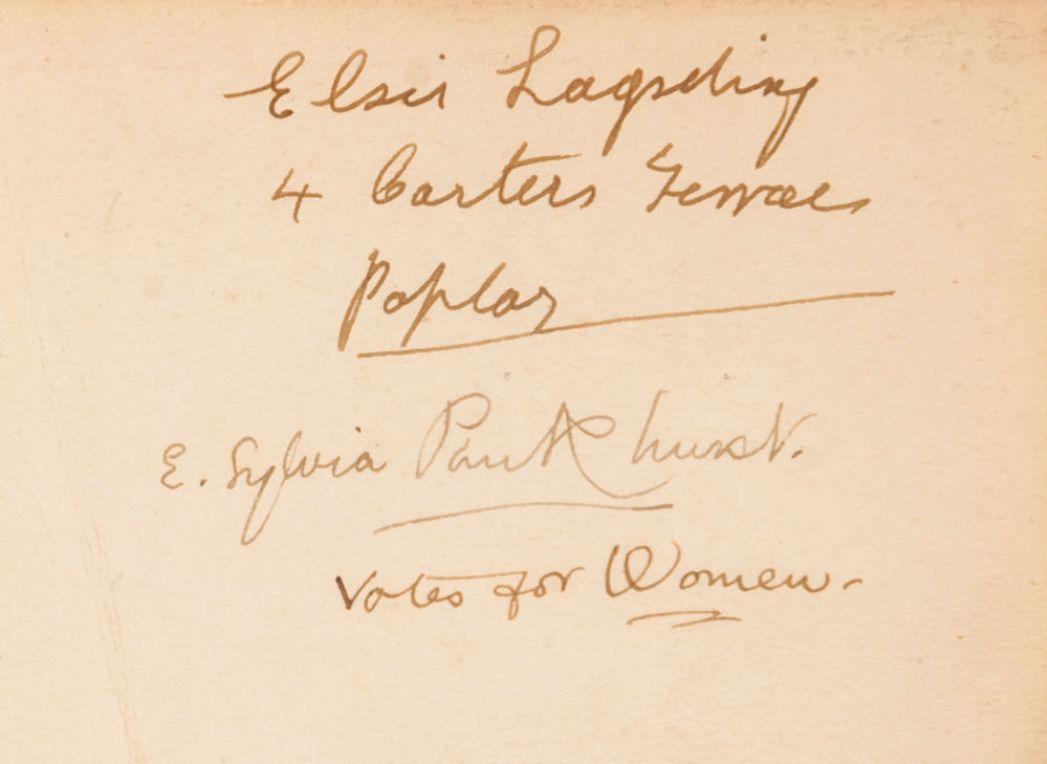 Elsie Lagsding
4 Carters Terrace
Poplar
E. Sylvia Pankhurst.
Votes for Women.